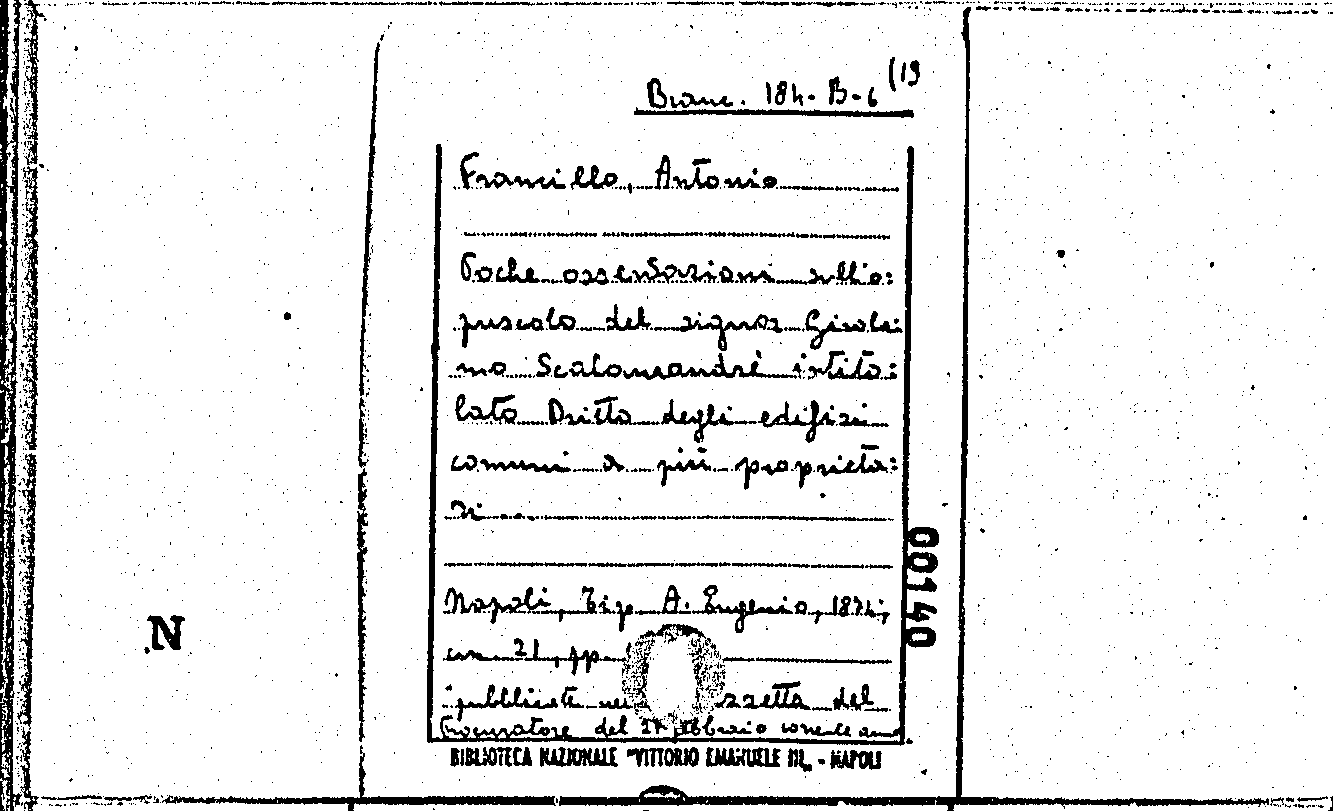 Branc. 184-B-6 (19
Francillo, Antonio
Poche osservazioni sull'o:
puscolo del signor Girola:
mo Scalamandrè intito:
lato Dritto degli edifizi
comuni a più proprieta:
ri...
Napoli, Tip. A. Eugenio, 1874;
cm. 21, pp.
pubblicate zzetta del
Procuratore del ebbraio corrente anno
BIBLIOTECA NAZIONALE "VITTORIO EMANUELE III„ - NAPOLI
00140
N